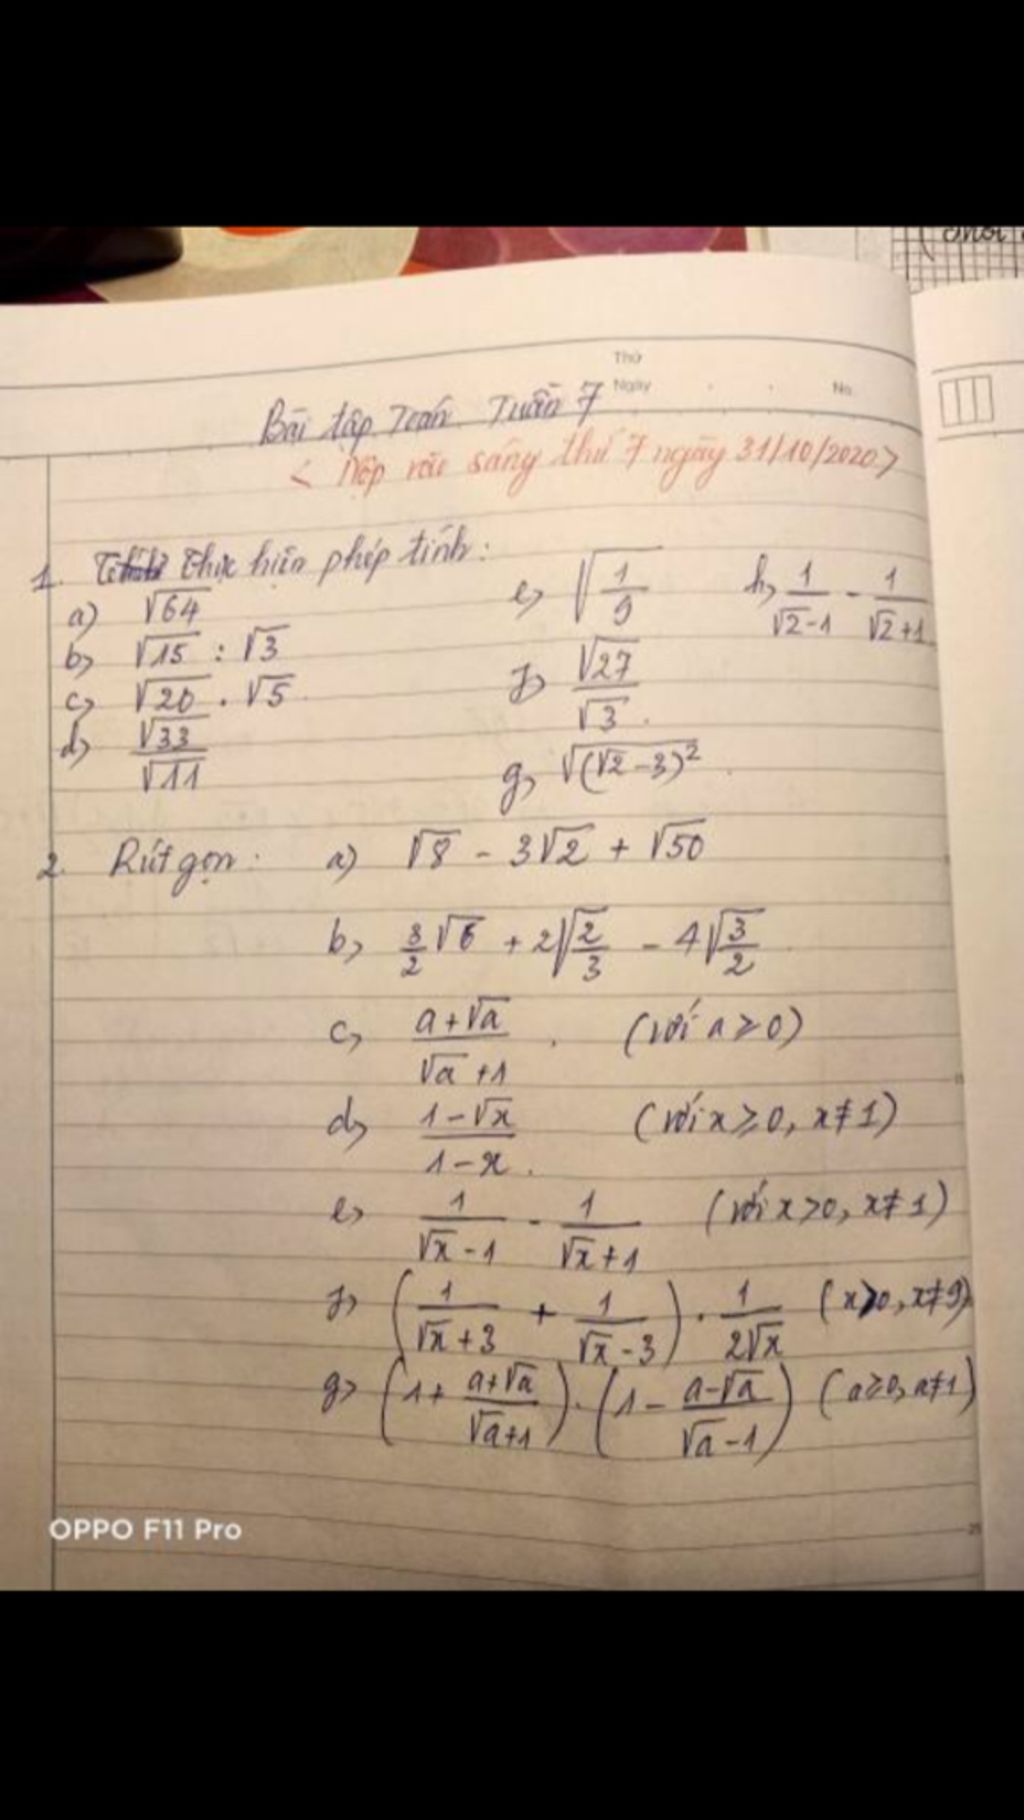 Thứ
Ngày No.
Bài tập Toán Tuần 7
< Nộp vào sáng thứ 7 ngày 31/10/2020 >
1. Thực hiện phép tính:
a) √64
b) √15 : √3
c) √20 . √5
d) √33/√11
e) √(1/9)
f) √27/√3.
g) √((√2-3)²)
h) 1/(√2-1) - 1/(√2+1)
2. Rút gọn: a) √8 - 3√2 + √50
b) 3/2 √6 + 2√(2/3) - 4√(3/2)
c) (a+√a)/(√a+1) . (với a ≥ 0)
d) (1-√x)/(1-x). (với x ≥ 0, x ≠ 1)
e) 1/(√x-1) - 1/(√x+1) (với x > 0, x ≠ 1)
f) (1/(√x+3) + 1/(√x-3)) . 1/(2√x) (x > 0, x ≠ 9)
g) (1 + (a+√a)/(√a+1)) . (1 - (a-√a)/(√a-1)) (a ≥ 0, a ≠ 1)
OPPO F11 Pro